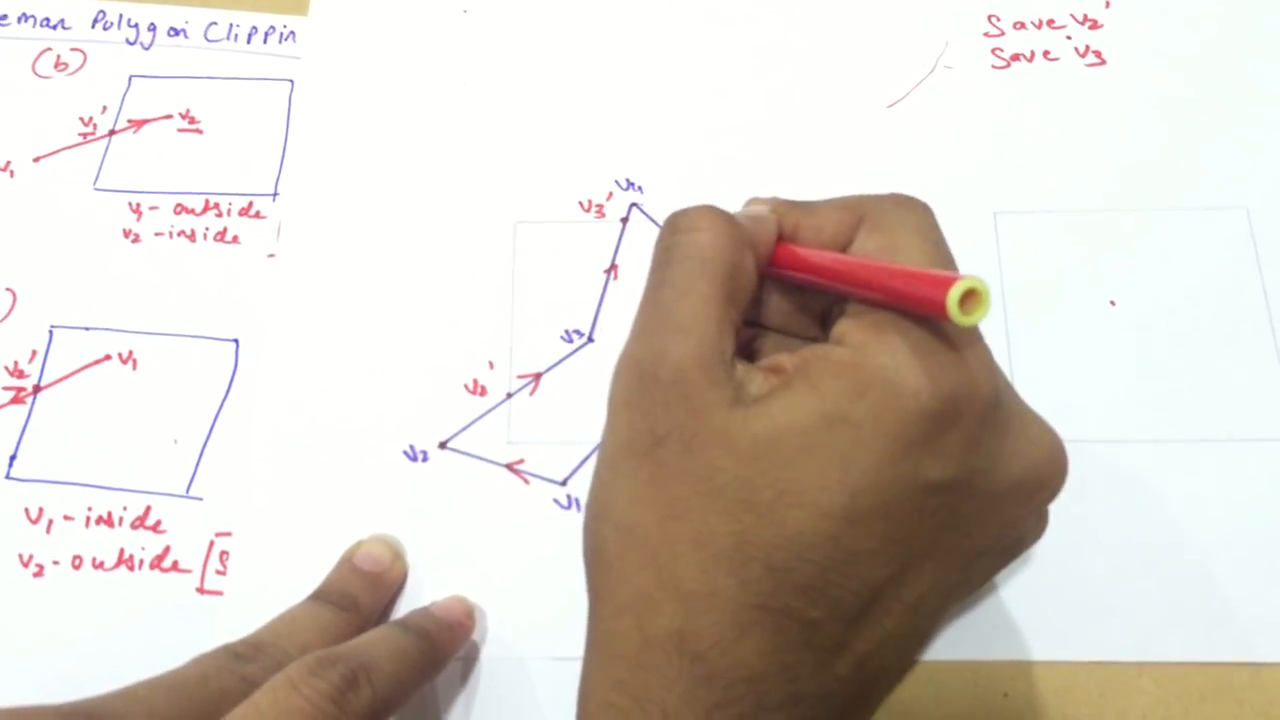 eman Polygon Clippin
(b)
v1' v2
v1
v1 - outside
v2 - inside
)
v2' v1
v1 - inside
v2 - outside [S
Save v2'
Save v3
v4
v3'
v3
v2'
v2
v1